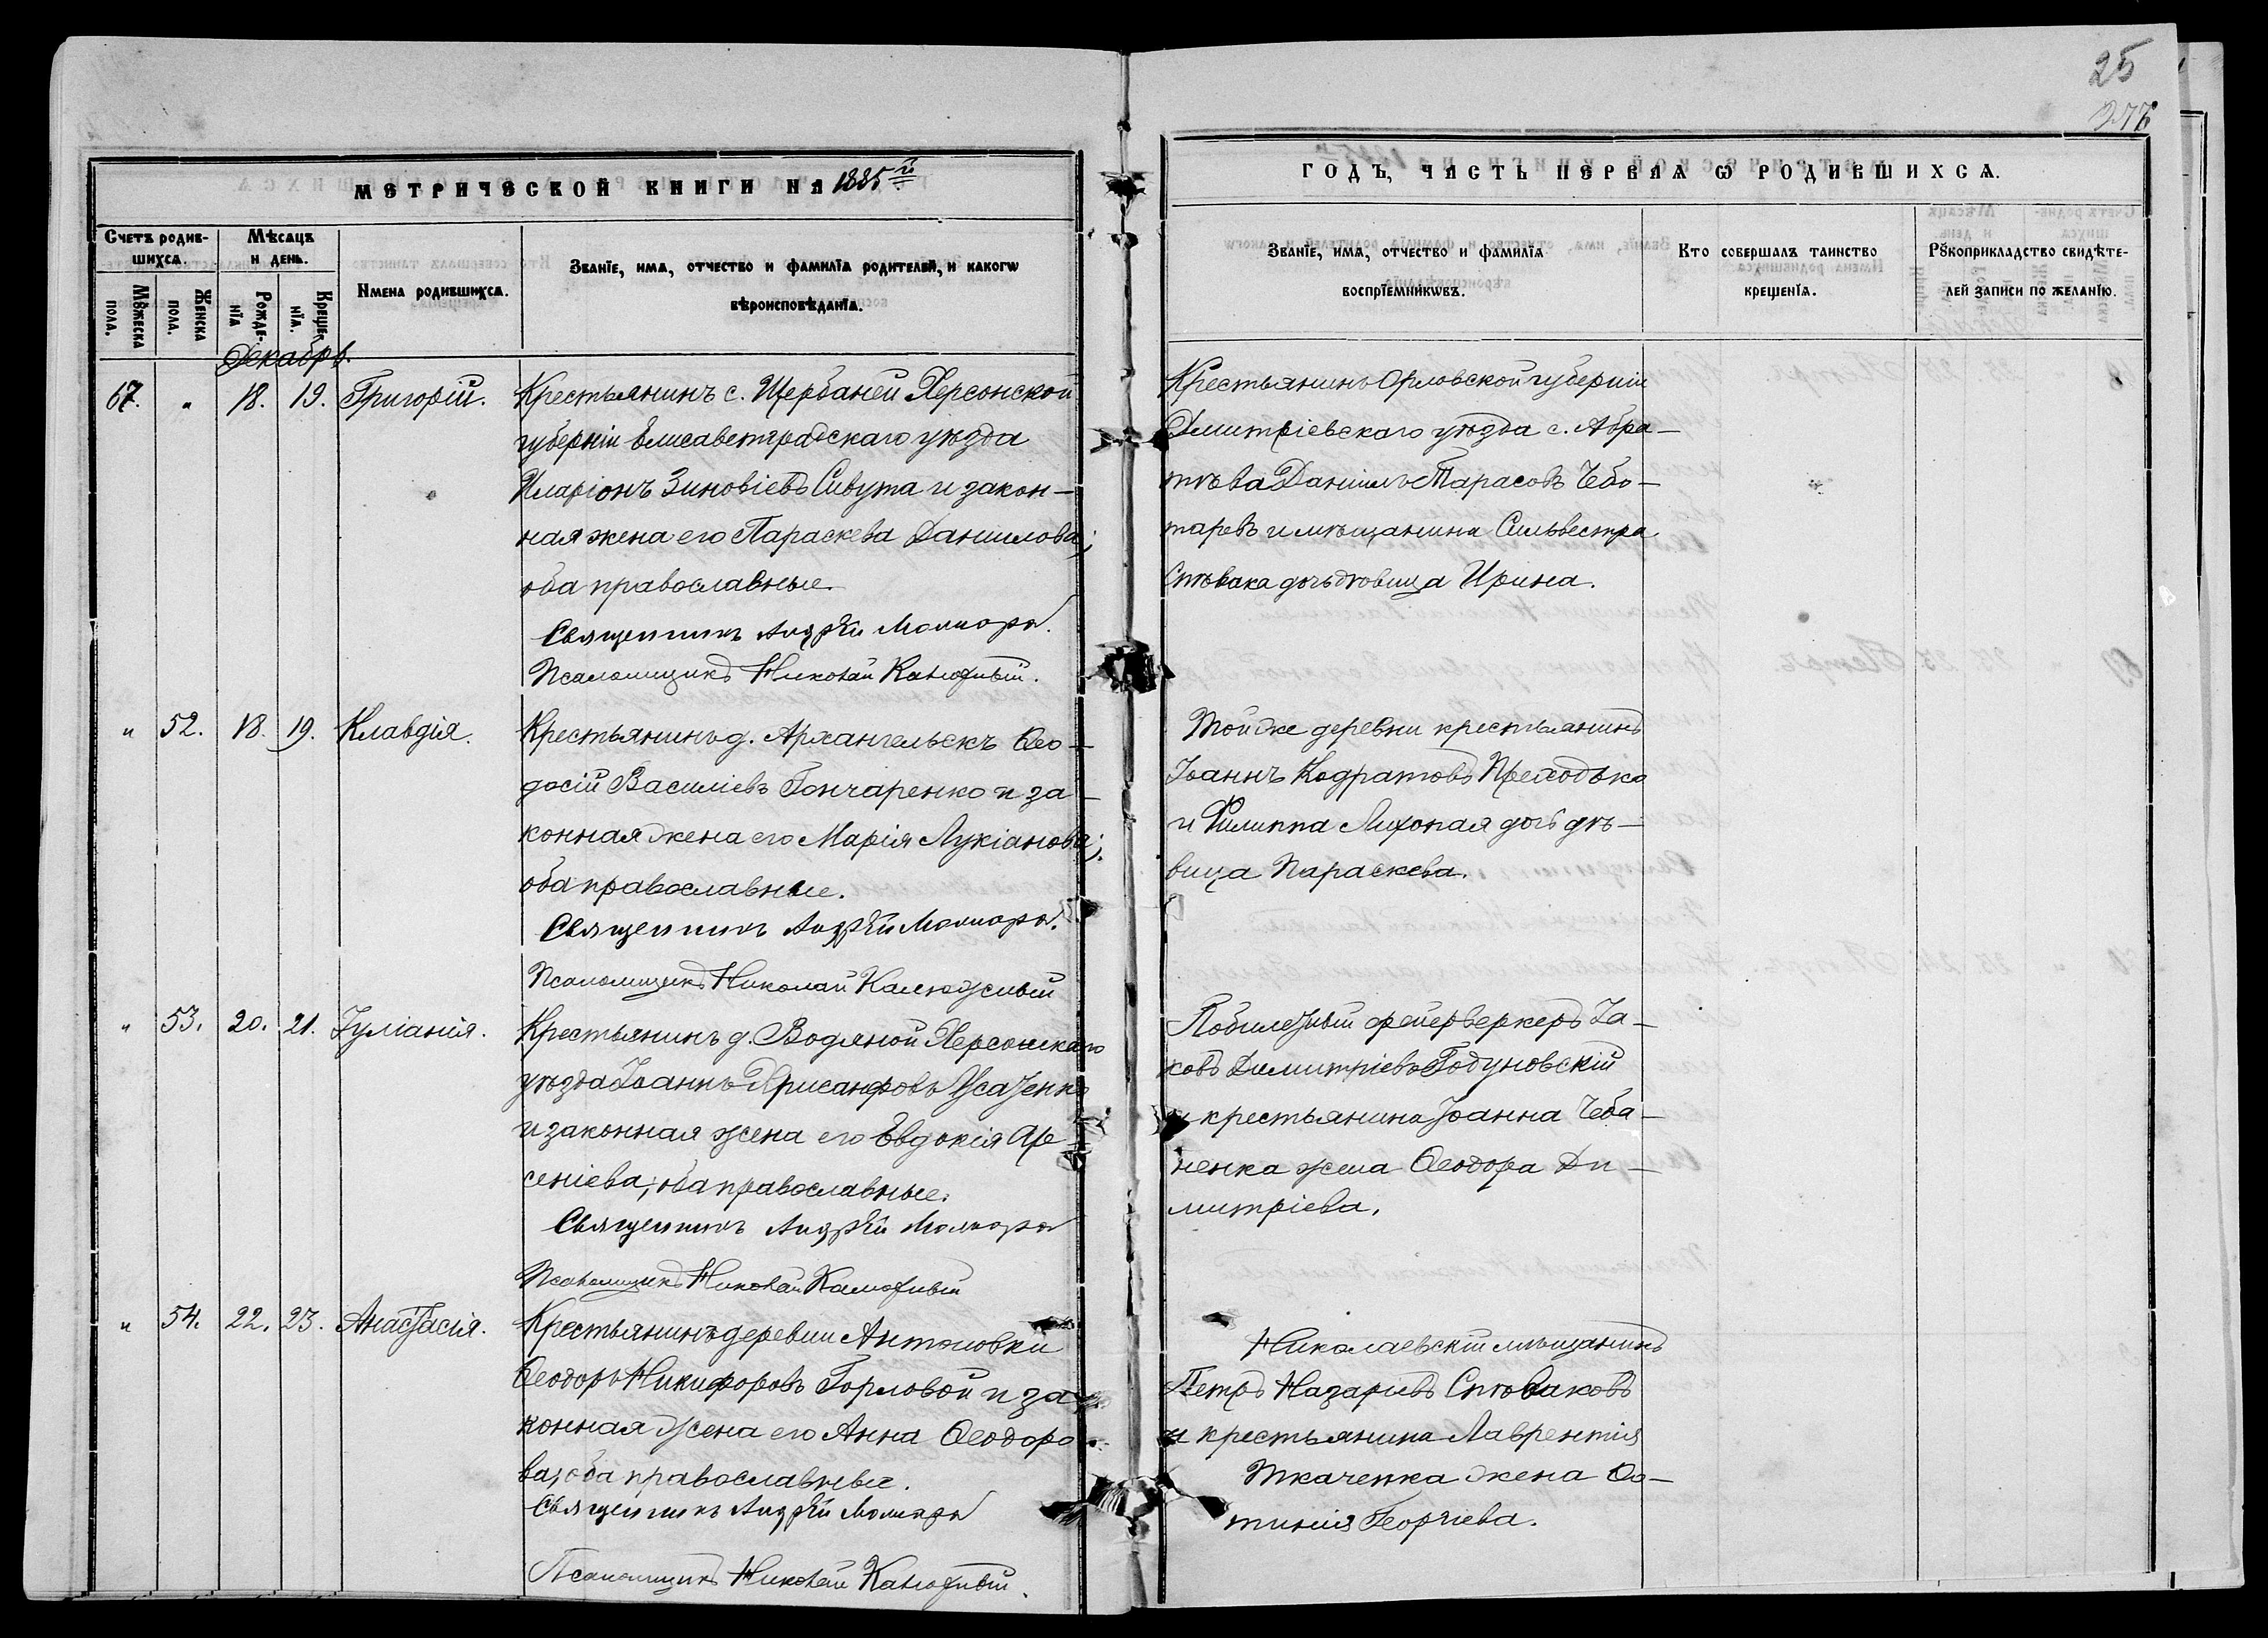 25
277
МЕТРИЧЕСКОЙ КНИГИ НА 1885й
ГОДЪ, ЧАСТЬ ПЕРВАѦ Ѡ РОДИВШИХСѦ.
Счетъ родив-
шихсѧ.
Мѣсѧцъ
и день.
Мꙋжеска
пола.
Женска
пола.
Рожде-
нїѧ
Креще-
нїѧ.
Имена родившихсѧ.
Званїе, имѧ, отчество и фамилїѧ родителей, и какогѡ
вѣроисповѣданїѧ.
Званїе, имѧ, отчество и фамилїѧ
воспрїемникѡвъ.
Кто совершалъ таинство
крещенїѧ.
Рꙋкоприкладство свидѣте-
лей записи по желанїю.
Декабрь.
67. " 18. 19. Григорій.
Крестьянинъ с. Щербаней Херсонской
губерніи Елисаветградскаго уѣзда
Иларіонъ Зиновіевъ Сивута и закон-
ная жена его Параскева Данилова;
оба православные.
Священникъ Андрей
Псаломщикъ Николай Калюжный.
Крестьянинъ Орловской губерніи
Дмитріевскаго уѣзда с. Абра-
тѣва Даніилъ Тарасовъ Чебо-
таревъ и мѣщанина Сильвестра
Спѣвака дочь дѣвица Ирина.
" 52. 18. 19. Клавдія.
Крестьянинъ д. Архангельскъ Ѳео-
досій Василіевъ Гончаренко и за-
конная жена его Марія Лукіанова;
оба православные.
Священникъ Андрей
Псаломщикъ Николай Калюжный
Той же деревни крестьянинъ
Іоаннъ Кодратовъ Приходько
и Филиппа Лихопая дочь дѣ-
вица Параскева.
" 53. 20. 21. Іуліанія.
Крестьянинъ д. Водяной Херсонскаго
уѣзда Іоаннъ Хрисанфовъ Усаченко
и законная жена его Евдокія Ар-
сеніева; оба православные.
Священникъ Андрей
Псаломщикъ Николай Калюжный
фейерверкеръ Іа-
ковъ Димитріевъ Годуновскій
и крестьянина Іоанна Чеба-
ненка жена Ѳеодора Ди-
митріева.
" 54. 22. 23. Анастасія.
Крестьянинъ деревни Антоновки
Ѳеодоръ Никифоровъ Горловой и за-
конная жена его Анна Ѳеодоро-
ва, оба православные.
Священникъ Андрей
Псаломщикъ Николай Калюжный.
Николаевскій мѣщанинъ
Петръ Назаріевъ Спѣваковъ
и крестьянина Лаврентія
Ткаченка жена Фо-
тинія Георгіева.